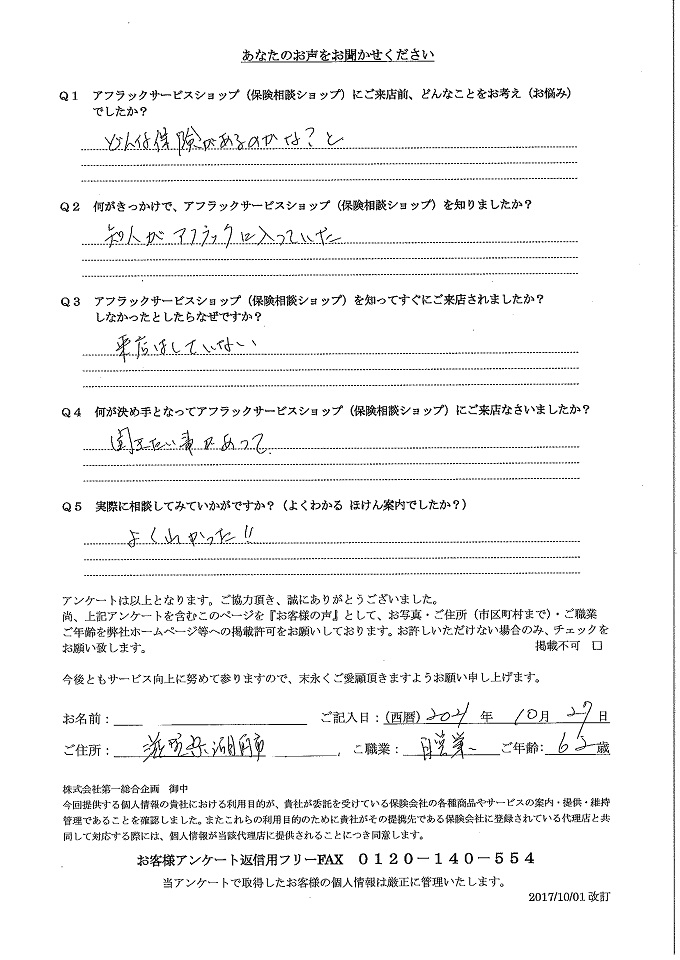 あなたのお声をお聞かせください
Q1 アフラックサービスショップ（保険相談ショップ）にご来店前、どんなことをお考え（お悩み）
でしたか？
どんな保険があるのかな？と
Q2 何がきっかけで、アフラックサービスショップ（保険相談ショップ）を知りましたか？
知人がアフラックに入っていた
Q3 アフラックサービスショップ（保険相談ショップ）を知ってすぐにご来店されましたか？
しなかったとしたらなぜですか？
来店はしていない
Q4 何が決め手となってアフラックサービスショップ（保険相談ショップ）にご来店なさいましたか？
聞きたい事があって
Q5 実際に相談してみていかがですか？（よくわかる ほけん案内でしたか？）
よくわかった!!
アンケートは以上となります。ご協力頂き、誠にありがとうございました。
尚、上記アンケートを含むこのページを『お客様の声』として、お写真・ご住所（市区町村まで）・ご職業
ご年齢を弊社ホームページ等への掲載許可をお願いしております。お許しいただけない場合のみ、チェックを
お願い致します。 掲載不可 □
今後ともサービス向上に努めて参りますので、末永くご愛顧頂きますようお願い申し上げます。
お名前： ご記入日：（西暦）2021 年 10月 27日
ご住所： 滋賀県湖南市 ご職業： 自営業 ご年齢： 62歳
株式会社第一総合企画 御中
今回提供する個人情報の貴社における利用目的が、貴社が委託を受けている保険会社の各種商品やサービスの案内・提供・維持
管理であることを確認しました。またこれらの利用目的のために貴社がその提携先である保険会社に登録されている代理店と共
同して対応する際には、個人情報が当該代理店に提供されることにつき同意します。
お客様アンケート返信用フリーFAX 0120－140－554
当アンケートで取得したお客様の個人情報は厳正に管理いたします。
2017/10/01 改訂